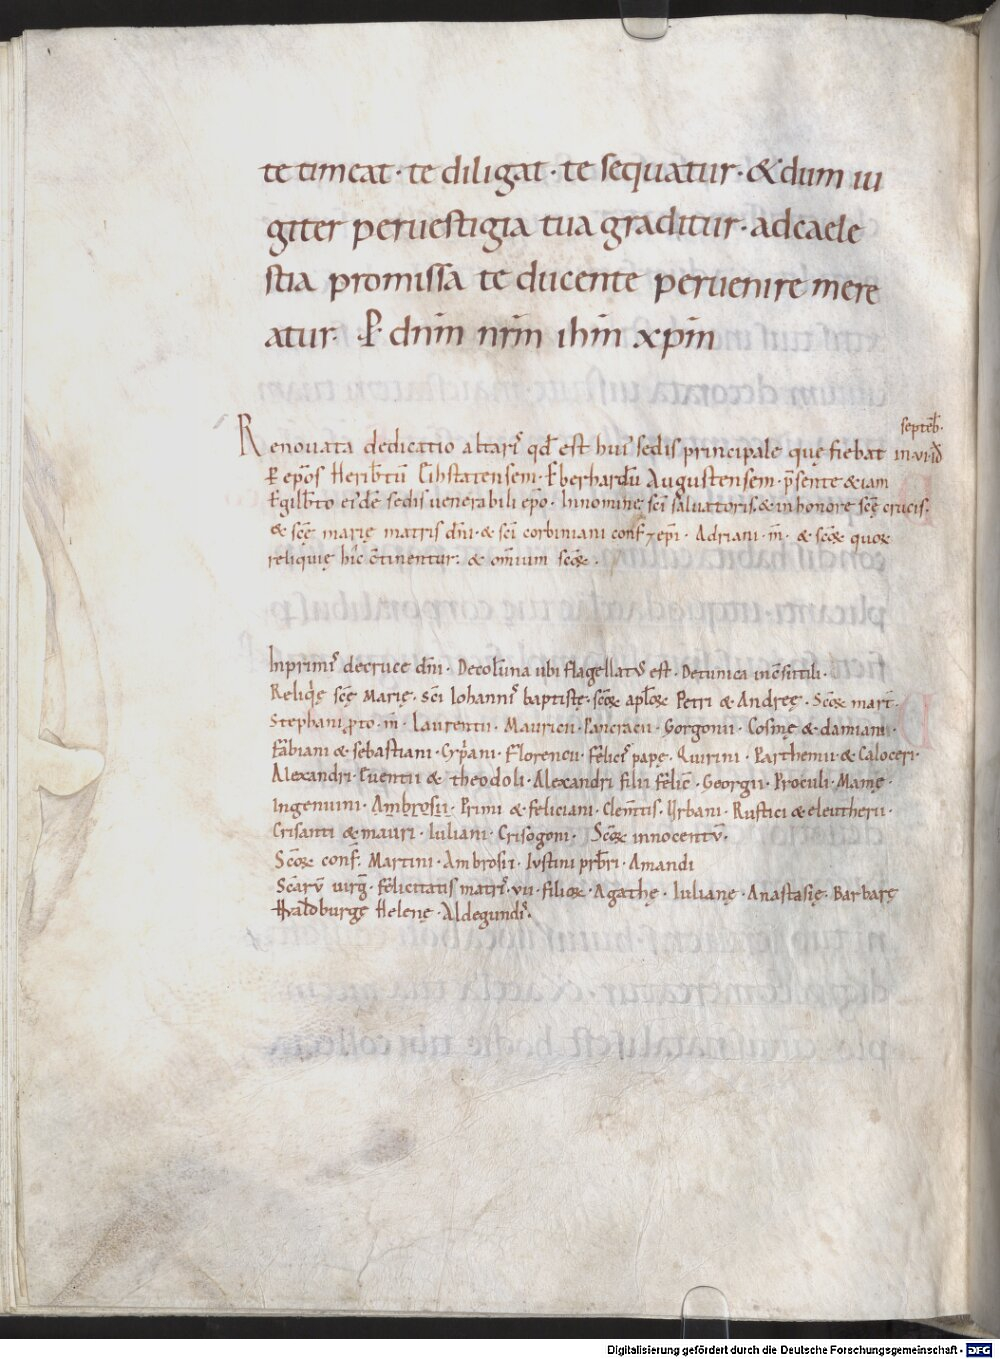 te timeat · te diligat · te sequatur · & dum iu
giter peruestigia tua graditur · adcaele
stia promissa te ducente peruenire mere
atur · P̲ dn̄m nr̄m ihm̄ xpm̄
septēb·
Renouata dedicatio altarꝭ qđ est hui' sedis principale quę fiebat in·vi·iđ
P̲ ep̄os Heribtū Eihstatensem · Eberhardū Augustensem · p̄sente & iam
Egilb̄to ei'dē sedis uenerabili ep̄o · Innomine sc̄i saluatoris · & inhonore sc̄ę crucis ·
& sc̄ę marię matris dn̄i · & sc̄i corbiniani conf̄ ⁊ ep̄i · Adriani · m̄ · & sc̄oꝝ quoꝝ
reliquię hic c̄tinentur · & om̄ium sc̄oꝝ ·
Inprimꝭ decruce dn̄i · Decolūna ubi flagellat' est · Detunica incōsutili ·
Reliq̇ę sc̄ę Marię · Sc̄i Iohannꝭ baptistę · sc̄oꝝ ap̄loꝝ Petri & Andreę · Sc̄oꝝ mart̄ ·
Stephani proto · m̄ · Laurentii · Mauricii · Pancracii · Gorgonii · Cosmę & damiani ·
Fabiani & sebastiani · Cyp̄ani · Florencii · Felicꝭ papę · Quirini · Parthemii & Caloceri ·
Alexandri · Euentii & theodoli · Alexandri filii felic̄ · Georgii · Proculi · Mamę ·
Ingenuini · Ambrosii · Primi & feliciani · Clem̄tis · Vrbani · Rustici & eleutherii ·
Crisanti & mauri · Iuliani · Crisogoni · Sc̄oꝝ innocentū ·
Sc̄oꝝ conf̄ · Martini · Ambrosii · Iustini prb̄ri · Amandi
Sc̄arū uirḡ · felicitatis matrꝭ · vii · filioꝝ · Agathę · Iulianę · Anastasię · Barbarę
Hvaldburgę Helenę · Aldegundꝭ ·
Digitalisierung gefördert durch die Deutsche Forschungsgemeinschaft - DFG